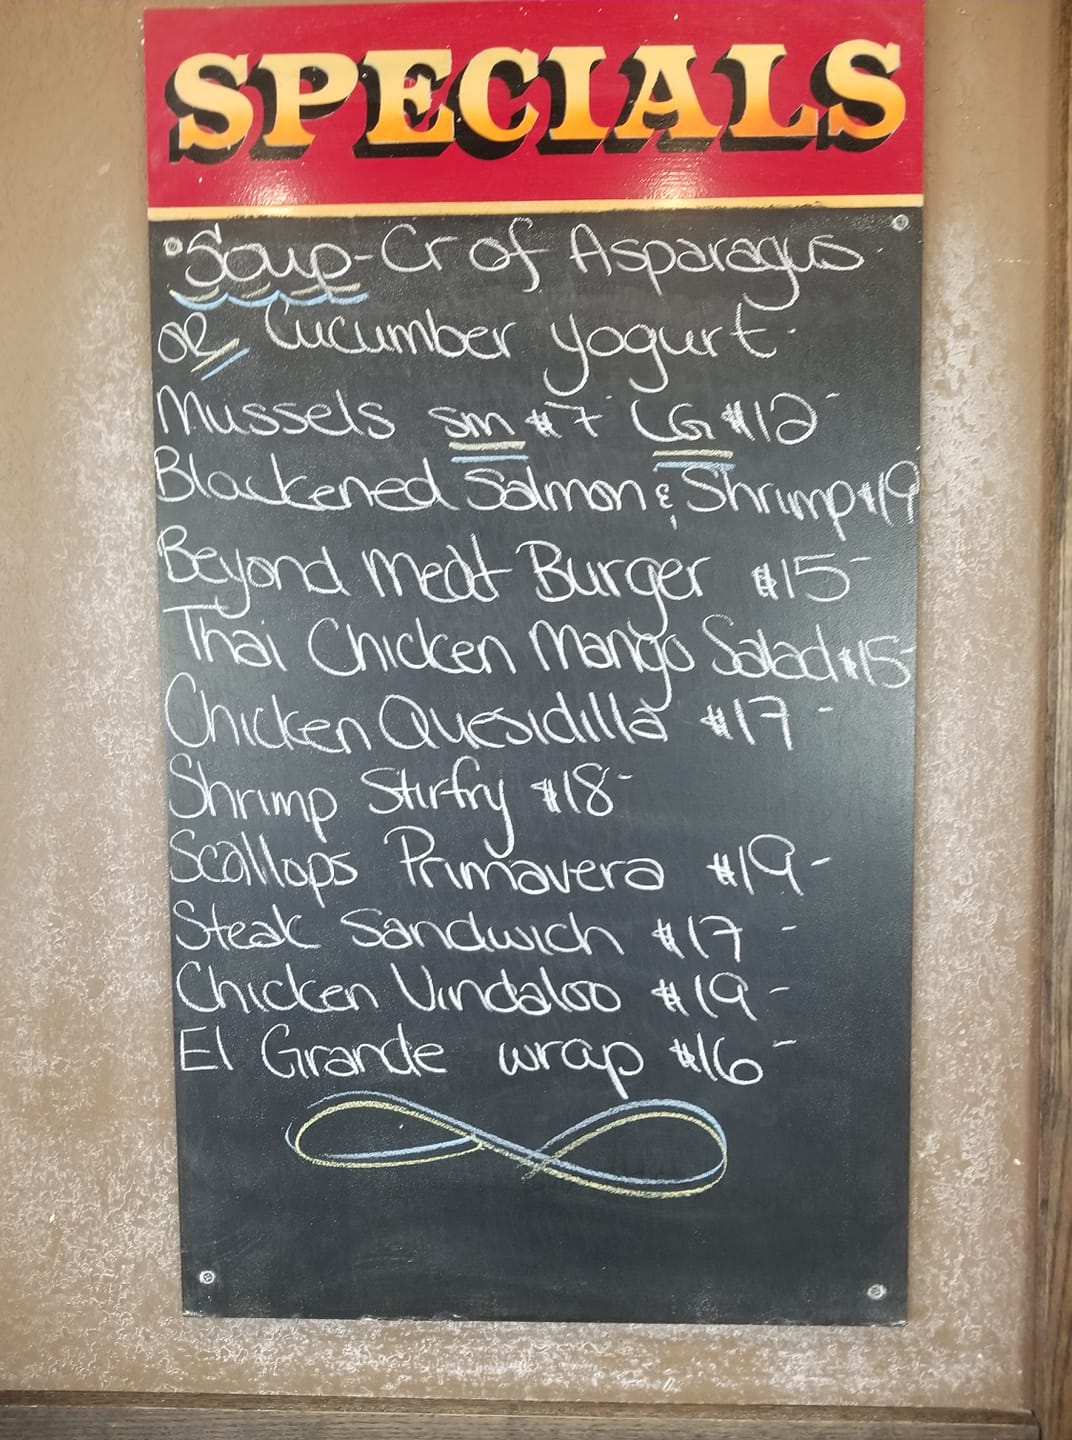 SPECIALS
Soup-Cr of Asparagus
OR Cucumber yogurt
Mussels sm $7 LG $12-
Blackened Salmon & Shrimp $19
Beyond Meat Burger $15-
Thai Chicken Mango Salad $15-
Chicken Quesidilla $17-
Shrimp Stirfry $18-
Scallops Primavera $19-
Steak Sandwich $17-
Chicken Vindaloo $19-
El Grande wrap $16-